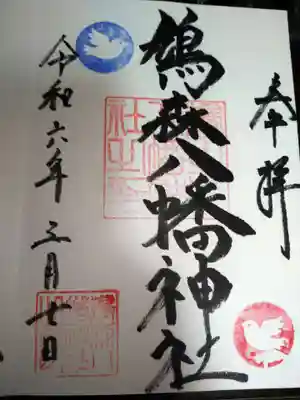 奉拝
鳩森八幡神社
令和六年三月七日